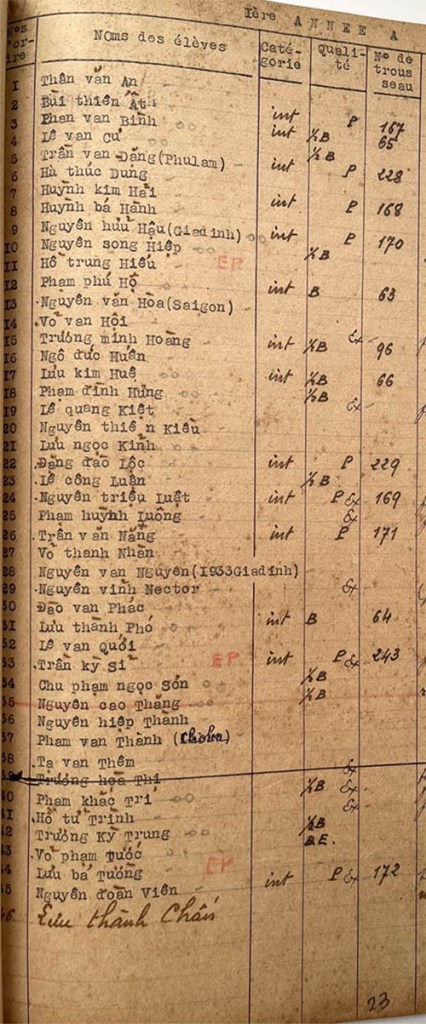 Ière ANNEE A
Nos d'ordre Noms des élèves Catégorie Qualité No de trousseau
1 Thân văn An
2 Bùi thiên Ất
3 Phan van Binh int P 167
4 Lê van Cư int ½B 65
5 Trần van Đặng(Phulam) ½B
6 Hà thúc Dung int P 228
7 Huỳnh kim Hải
8 Huỳnh bá Hanh int P 168
9 Nguyễn hữu Hậu(Giadinh) int P 170
10 Nguyễn song Hiệp ½B
11 Hồ trung Hiếu EP
12 Phạm phú Hộ int B 63
13 Nguyễn văn Hòa(Saigon)
14 Võ van Hội
15 Trương minh Hoàng int ½B Ex 96
16 Ngô đức Huấn
17 Lưu kim Huê int ½B 66
18 Phạm đình Hưng ½B
19 Lê quang Kiệt Ex
20 Nguyễn thiện Kiều
21 Lưu ngọc Kinh
22 Đặng đạo Lộc int P 229
23 Lê công Luận ½B
24 Nguyễn triệu Luật int P Ex 169
25 Phạm huỳnh Luông Ex
26 Trần văn Nẵng int P 171
27 Võ thanh Nhàn
28 Nguyễn van Nguyên(1933Giadinh)
29 Nguyễn vinh Nector Ex
30 Đào van Phác
31 Lưu thành Phó int B 64
32 Lê van Quới
33 Trần kỳ Sĩ EP int P Ex 243
34 Chu phạm ngọc Sơn ½B
35 Nguyễn cao Thăng ½B
36 Nguyễn hiệp Thành
37 Phạm van Thành (Cholon)
38 Tạ van Thêm Ex
39 Trương hoa Thi ½B Ex
40 Phạm khắc Trí Ex
41 Hồ tư Trinh ½B
42 Trương Kỳ Trung B.E.
43 Võ phạm Tước
44 Lưu bá Tường EP int P Ex 172
45 Nguyễn đoàn Viên
46 Lưu thành Chấn
23